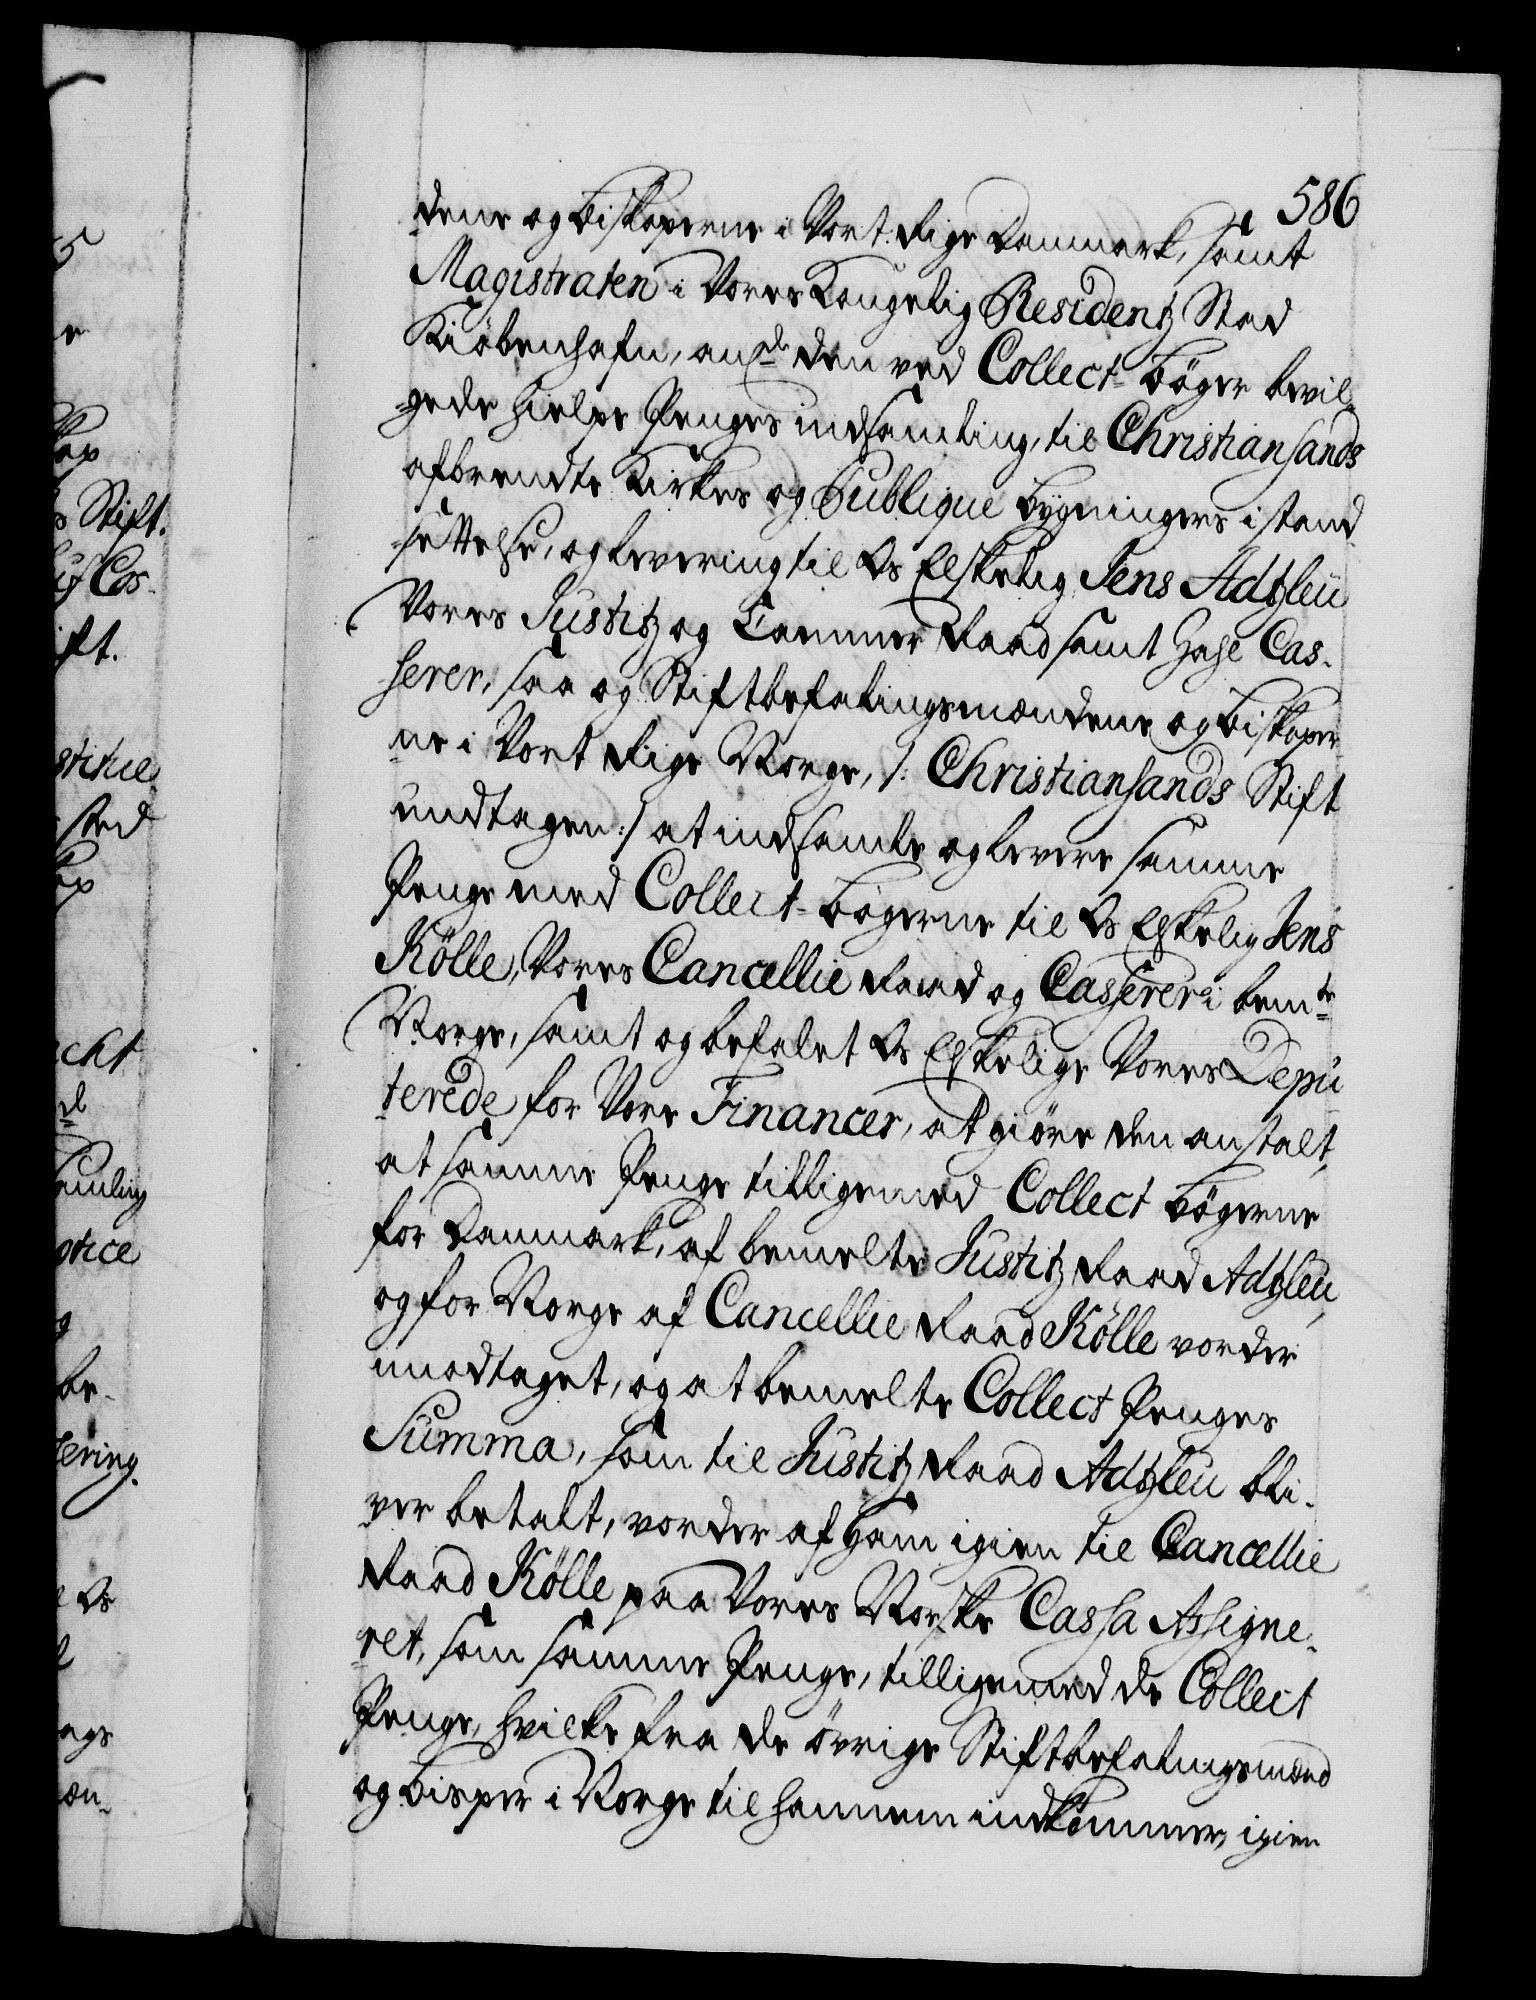 586
dene og Biskoperne i Vort Rige Danmark, samt
Magistraten i Vores Kongelig Residentz Stad
Kiöbenhafn, ang den ved Collect-bøger bevil-
gede hielpe Penges indsamling, til Christiansands
afbrendte Kirkes og Publique bygningers istand-
settelse, og levering til Os Elskelig Jens Adtzleü
Vores Justitz og Cammer Raad samt Zahl Cas-
serer, saa og Stiftbefalingsmændene og biskoper-
ne i Vort Rige Norge, /: Christiansands Stift
undtagen :/ at indsamle og levere samme
Penge med Collect-bøgerne til Os Elskelig Jens
Kölle, Vores Cancellie Raad og Casserer i bemte
Norge, samt og befalet Os Elskelige Vores Depu-
terede for Vore Financer, at giöre den anstalt,
at samme Penge tilligemed Collect bøgerne
for Danmark, af bemelte Justitz Raad Adtzleü,
og for Norge af Cancellie Raad Kölle vorder
modtaget, og at bemelte Collect Penges
Summa, som til Justitz Raad Adtzleu bli-
ver betalt, vorder af ham igien til Cancellie
Raad Kölle paa Vores Norske Cassa Assigne-
ret, som samme Penge, tilligemed de Collect
Penge, hvilke fra de övrige Stiftbefalingsmænd
og bisper i Norge til hannem indkommer, igien
Stift.
Cos-
ift.
stitue
sted
ckt
samling
otice
be-
tering.
Os